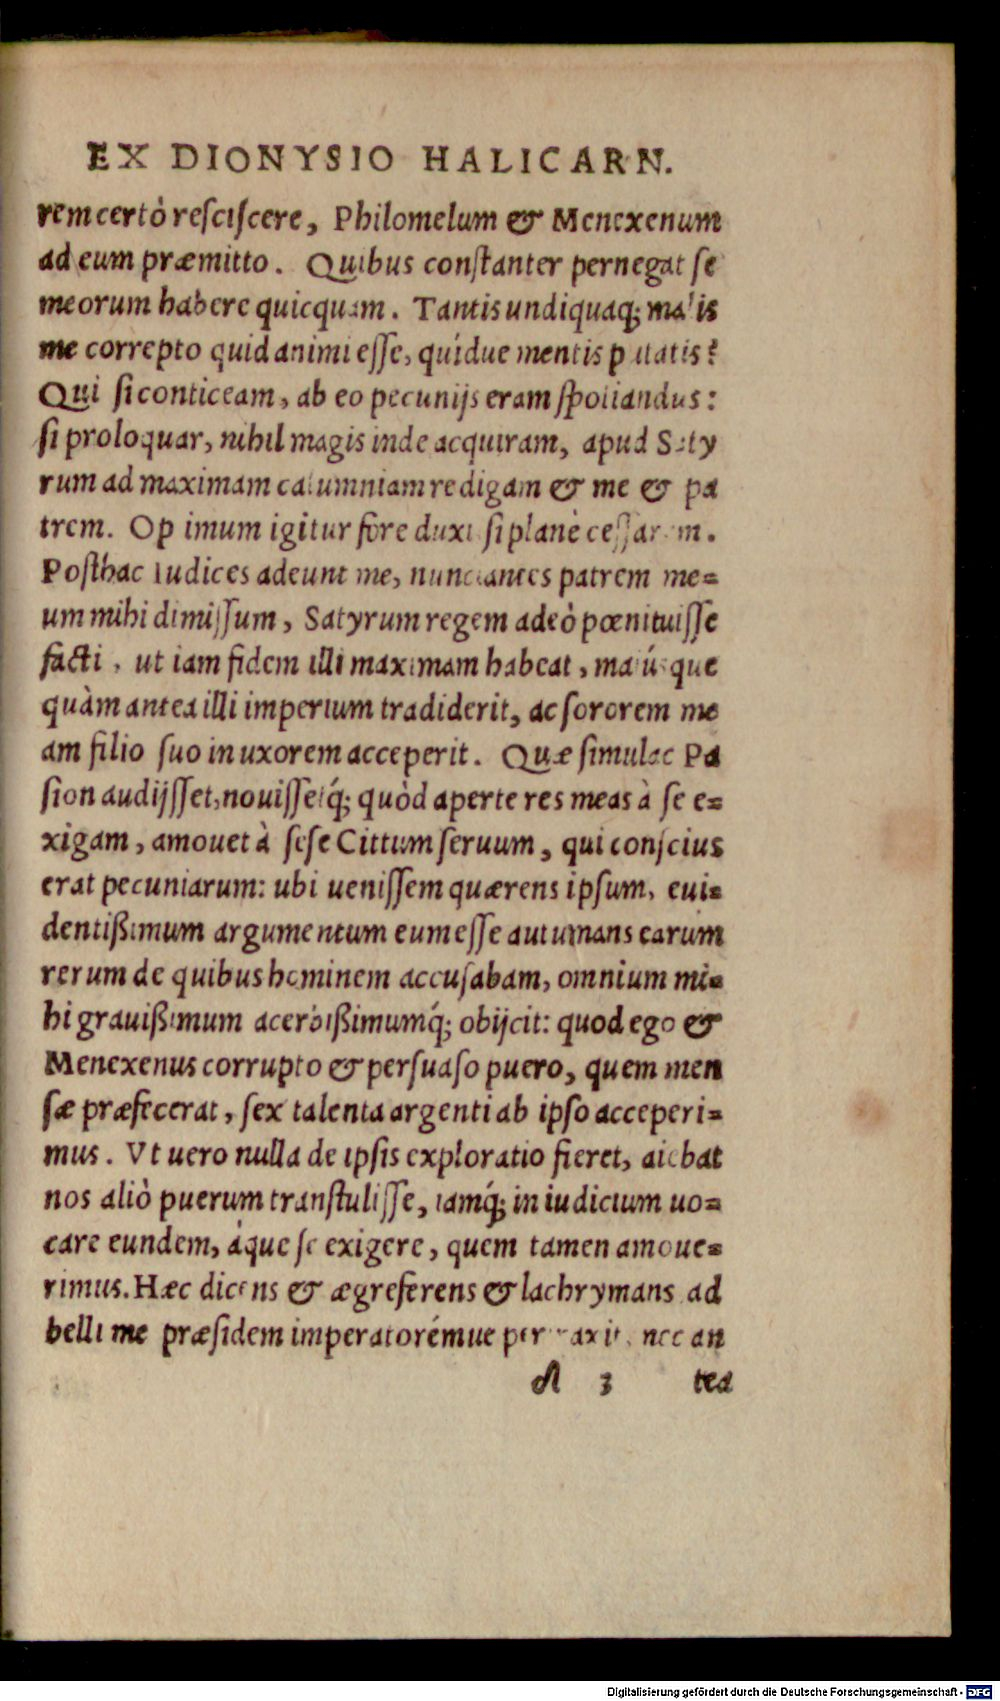 EX DIONYSIO HALICARN.
rem certò resciscere, Philomelum & Menexenum
ad eum præmitto. Quibus constanter pernegat se
meorum habere quicquam. Tantis undiquaq; malis
me correpto quid animi esse, quídue mentis putatis?
Qui si conticeam, ab eo pecunijs eram spoliandus:
si proloquar, nihil magis inde acquiram, apud Saty
rum ad maximam calumniam redigam & me & pa
trem. Optimum igitur fore duxi si planè cessarem.
Posthac Iudices adeunt me, nunciantes patrem me=
um mihi dimissum, Satyrum regem adeò pœnituisse
facti, ut iam fidem illi maximam habeat, maiúsque
quàm antea illi imperium tradiderit, ac sororem me
am filio suo in uxorem acceperit. Quæ simulac Pa
sion audijsset, nouissetq́; quòd aperte res meas à se e=
xigam, amouet à sese Cittum seruum, qui conscius
erat pecuniarum: ubi uenissem quærens ipsum, eui=
dentißimum argumentum eum esse autumans earum
rerum de quibus hominem accusabam, omnium mi=
hi grauißimum acerbißimumq́; obijcit: quod ego &
Menexenus corrupto & persuaso puero, quem men
sæ præfecerat, sex talenta argenti ab ipso acceperi=
mus. Vt uero nulla de ipsis exploratio fieret, aiebat
nos aliò puerum transtulisse, iamq́; in iudicium uo=
care eundem, àque se exigere, quem tamen amoue=
rimus. Hæc dicens & ægre ferens & lachrymans ad
belli me præsidem imperatorémue pertraxit, nec an
A 3 tea
Digitalisierung gefördert durch die Deutsche Forschungsgemeinschaft - DFG